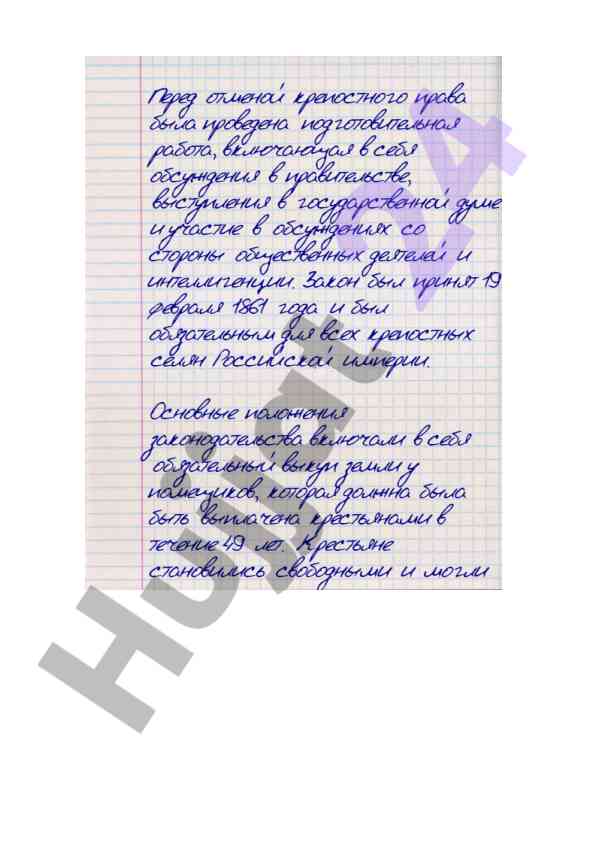 Перед отменой крепостного права
была проведена подготовительная
работа, включающая в себя
обсуждения в правительстве,
выступления в государственной думе
и участие в обсуждениях со
стороны общественных деятелей и
интеллигенции. Закон был принят 19
февраля 1861 года и был
обязательным для всех крепостных
селян Российской империи.
Основные положения
законодательства включали в себя
обязательный выкуп земли у
помещиков, которая должна была
быть выплачена крестьянами в
течение 49 лет. Крестьяне
становились свободными и могли
Hujjat 24